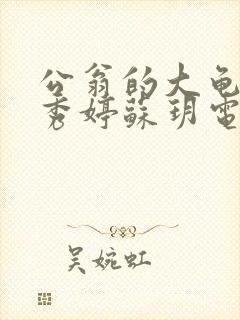 公翁的大龟
秀婷蘇玥電
吴婉虹